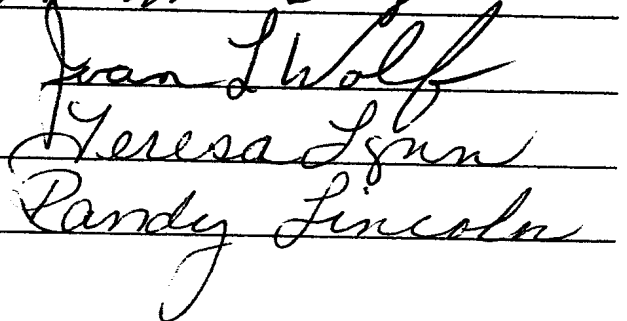 Ivan L Wolf
Teresa Lynn
Randy Lincoln